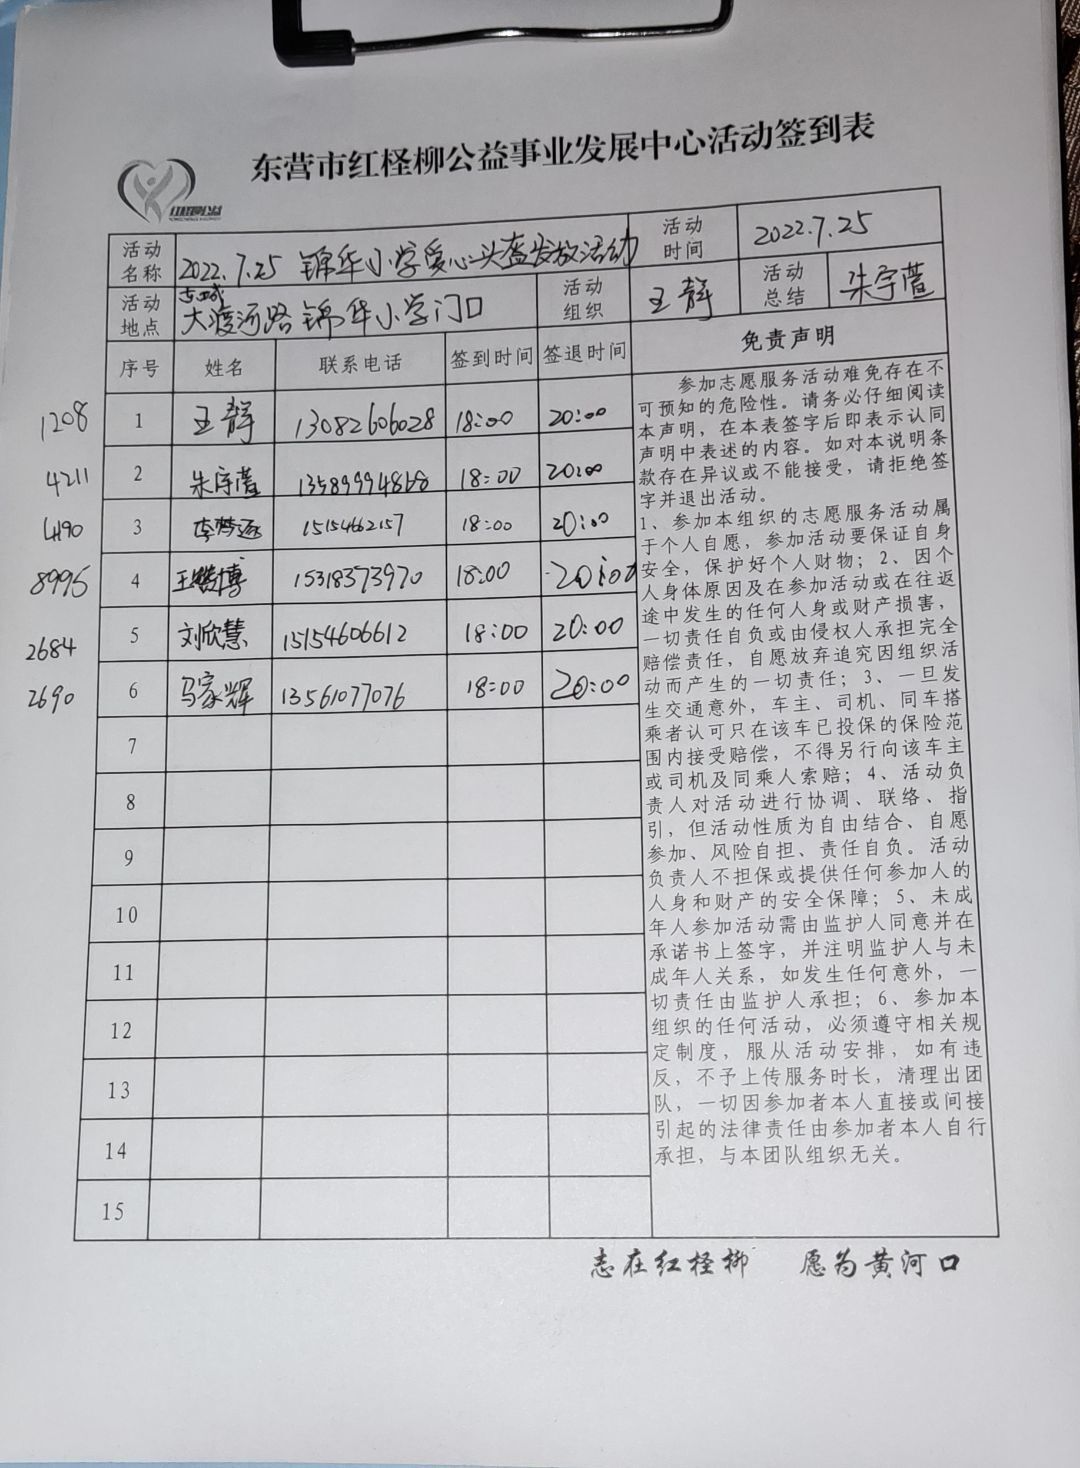 东营市红柽柳公益事业发展中心活动签到表
红柽柳公益
活动名称 2022.7.25 锦华小学爱心头盔发放活动 活动时间 2022.7.25
活动地点 东城大渡河路锦华小学门口 活动组织 王静 活动总结 朱宇萱
序号 姓名 联系电话 签到时间 签退时间
1208 1 王静 13082606028 18:00 20:00
4211 2 朱宇萱 13589994868 18:00 20:00
4190 3 李梦 15154662157 18:00 20:00
8995 4 王 博 15318373970 18:00 20:00
2684 5 刘欣慧 15154606612 18:00 20:00
2690 6 马家辉 13561077076 18:00 20:00
7
8
9
10
11
12
13
14
15
免责声明
参加志愿服务活动难免存在不
可预知的危险性。请务必仔细阅读
本声明，在本表签字后即表示认同
声明中表述的内容。如对本说明条
款存在异议或不能接受，请拒绝签
字并退出活动。
1、参加本组织的志愿服务活动属
于个人自愿，参加活动要保证自身
安全，保护好个人财物；2、因个
人身体原因及在参加活动或在往返
途中发生的任何人身或财产损害，
一切责任自负或由侵权人承担完全
赔偿责任，自愿放弃追究因组织活
动而产生的一切责任；3、一旦发
生交通意外，车主、司机、同车搭
乘者认可只在该车已投保的保险范
围内接受赔偿，不得另行向该车主
或司机及同乘人索赔；4、活动负
责人对活动进行协调、联络、指
引，但活动性质为自由结合、自愿
参加、风险自担、责任自负。活动
负责人不担保或提供任何参加人的
人身和财产的安全保障；5、未成
年人参加活动需由监护人同意并在
承诺书上签字，并注明监护人与未
成年人关系，如发生任何意外，一
切责任由监护人承担；6、参加本
组织的任何活动，必须遵守相关规
定制度，服从活动安排，如有违
反，不予上传服务时长，清理出团
队，一切因参加者本人直接或间接
引起的法律责任由参加者本人自行
承担，与本团队组织无关。
志在红柽柳 愿为黄河口